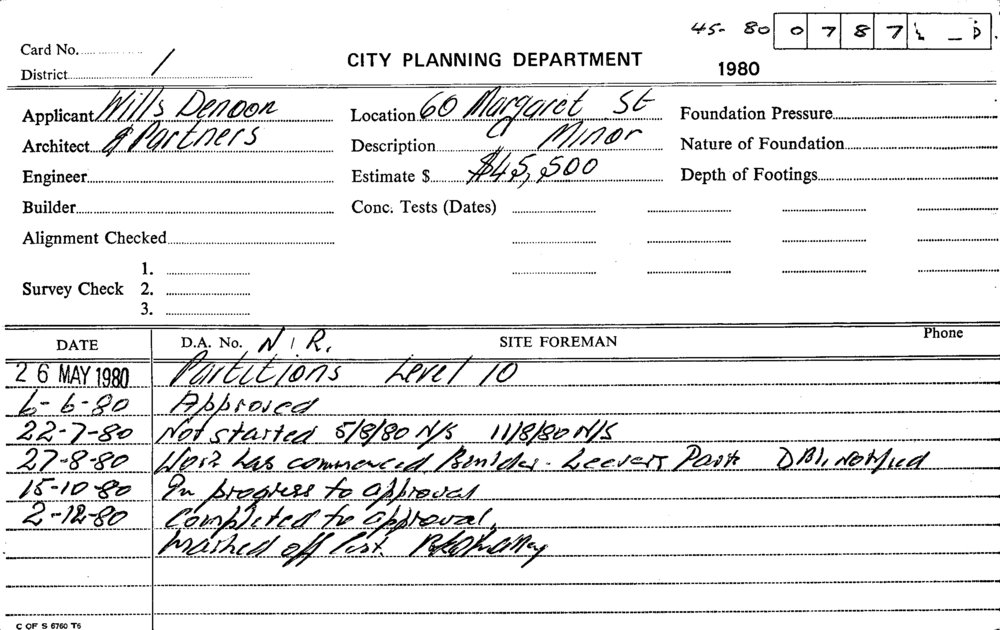 45- 80 0787
Card No.
CITY PLANNING DEPARTMENT
1980
District 1
Applicant Wills Denoon
Location 60 Margaret St
Foundation Pressure
Architect & Partners
Description Minor
Nature of Foundation
Engineer
Estimate $ $45,500
Depth of Footings
Builder
Conc. Tests (Dates)
Alignment Checked
1.
Survey Check 2.
3.
DATE D.A. No. N/R. SITE FOREMAN Phone
26 MAY 1980 Partitions Level 10
6-6-80 Approved
22-7-80 Not started 5/8/80 N/S 11/8/80 N/S
27-8-80 Work has commenced Builder - Notified
15-10-80 In progress to approval
2-12-80 Completed to approval.
Marked off List.
C OF S 6760 T6